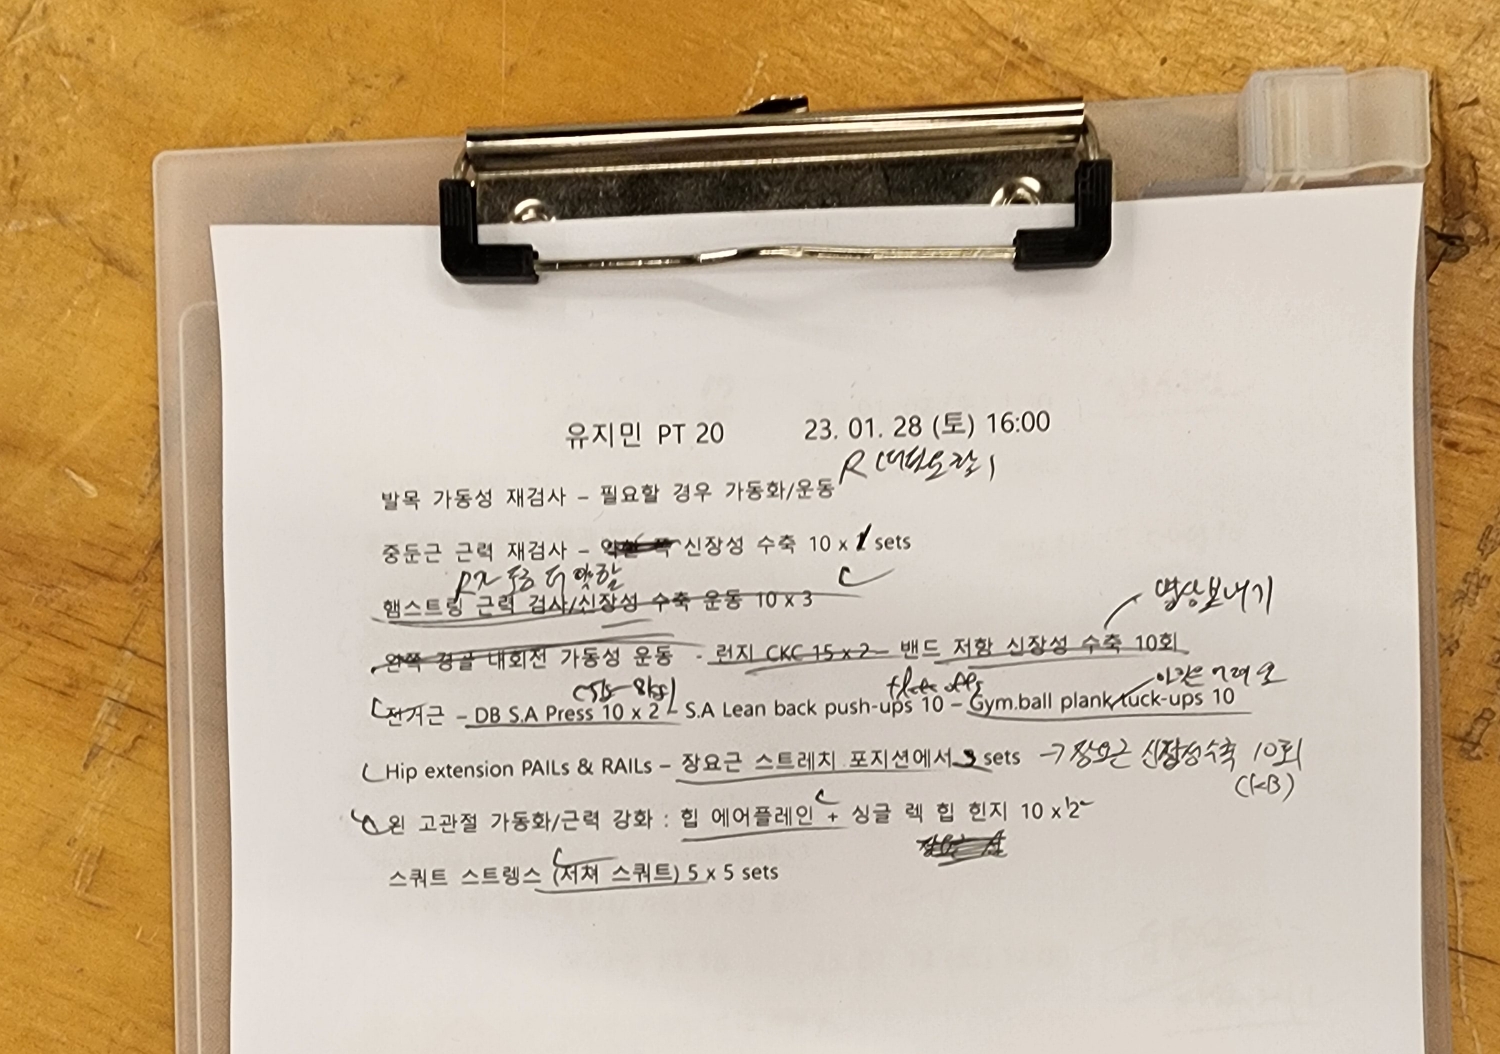 유지민 PT 20 23. 01. 28 (토) 16:00
R
발목 가동성 재검사 – 필요할 경우 가동화/운동
중둔근 근력 재검사 – 신장성 수축 10 x 1 sets
더 약함
햄스트링 근력 검사/신장성 수축 운동 10 x 3
영상보내기
왼쪽 경골 내회전 가동성 운동 - 런지 CKC 15 x 2 – 밴드 저항 신장성 수축 10회
(5kg-8kg)
전거근 – DB S.A Press 10 x 2 – S.A Lean back push-ups 10 – Gym.ball plank tuck-ups 10
Hip extension PAILs & RAILs – 장요근 스트레치 포지션에서 3 sets → 장요근 신장성수축 10회
(KB)
왼 고관절 가동화/근력 강화 : 힙 에어플레인 + 싱글 렉 힙 힌지 10 x 2
스쿼트 스트렝스 (저쳐 스쿼트) 5 x 5 sets